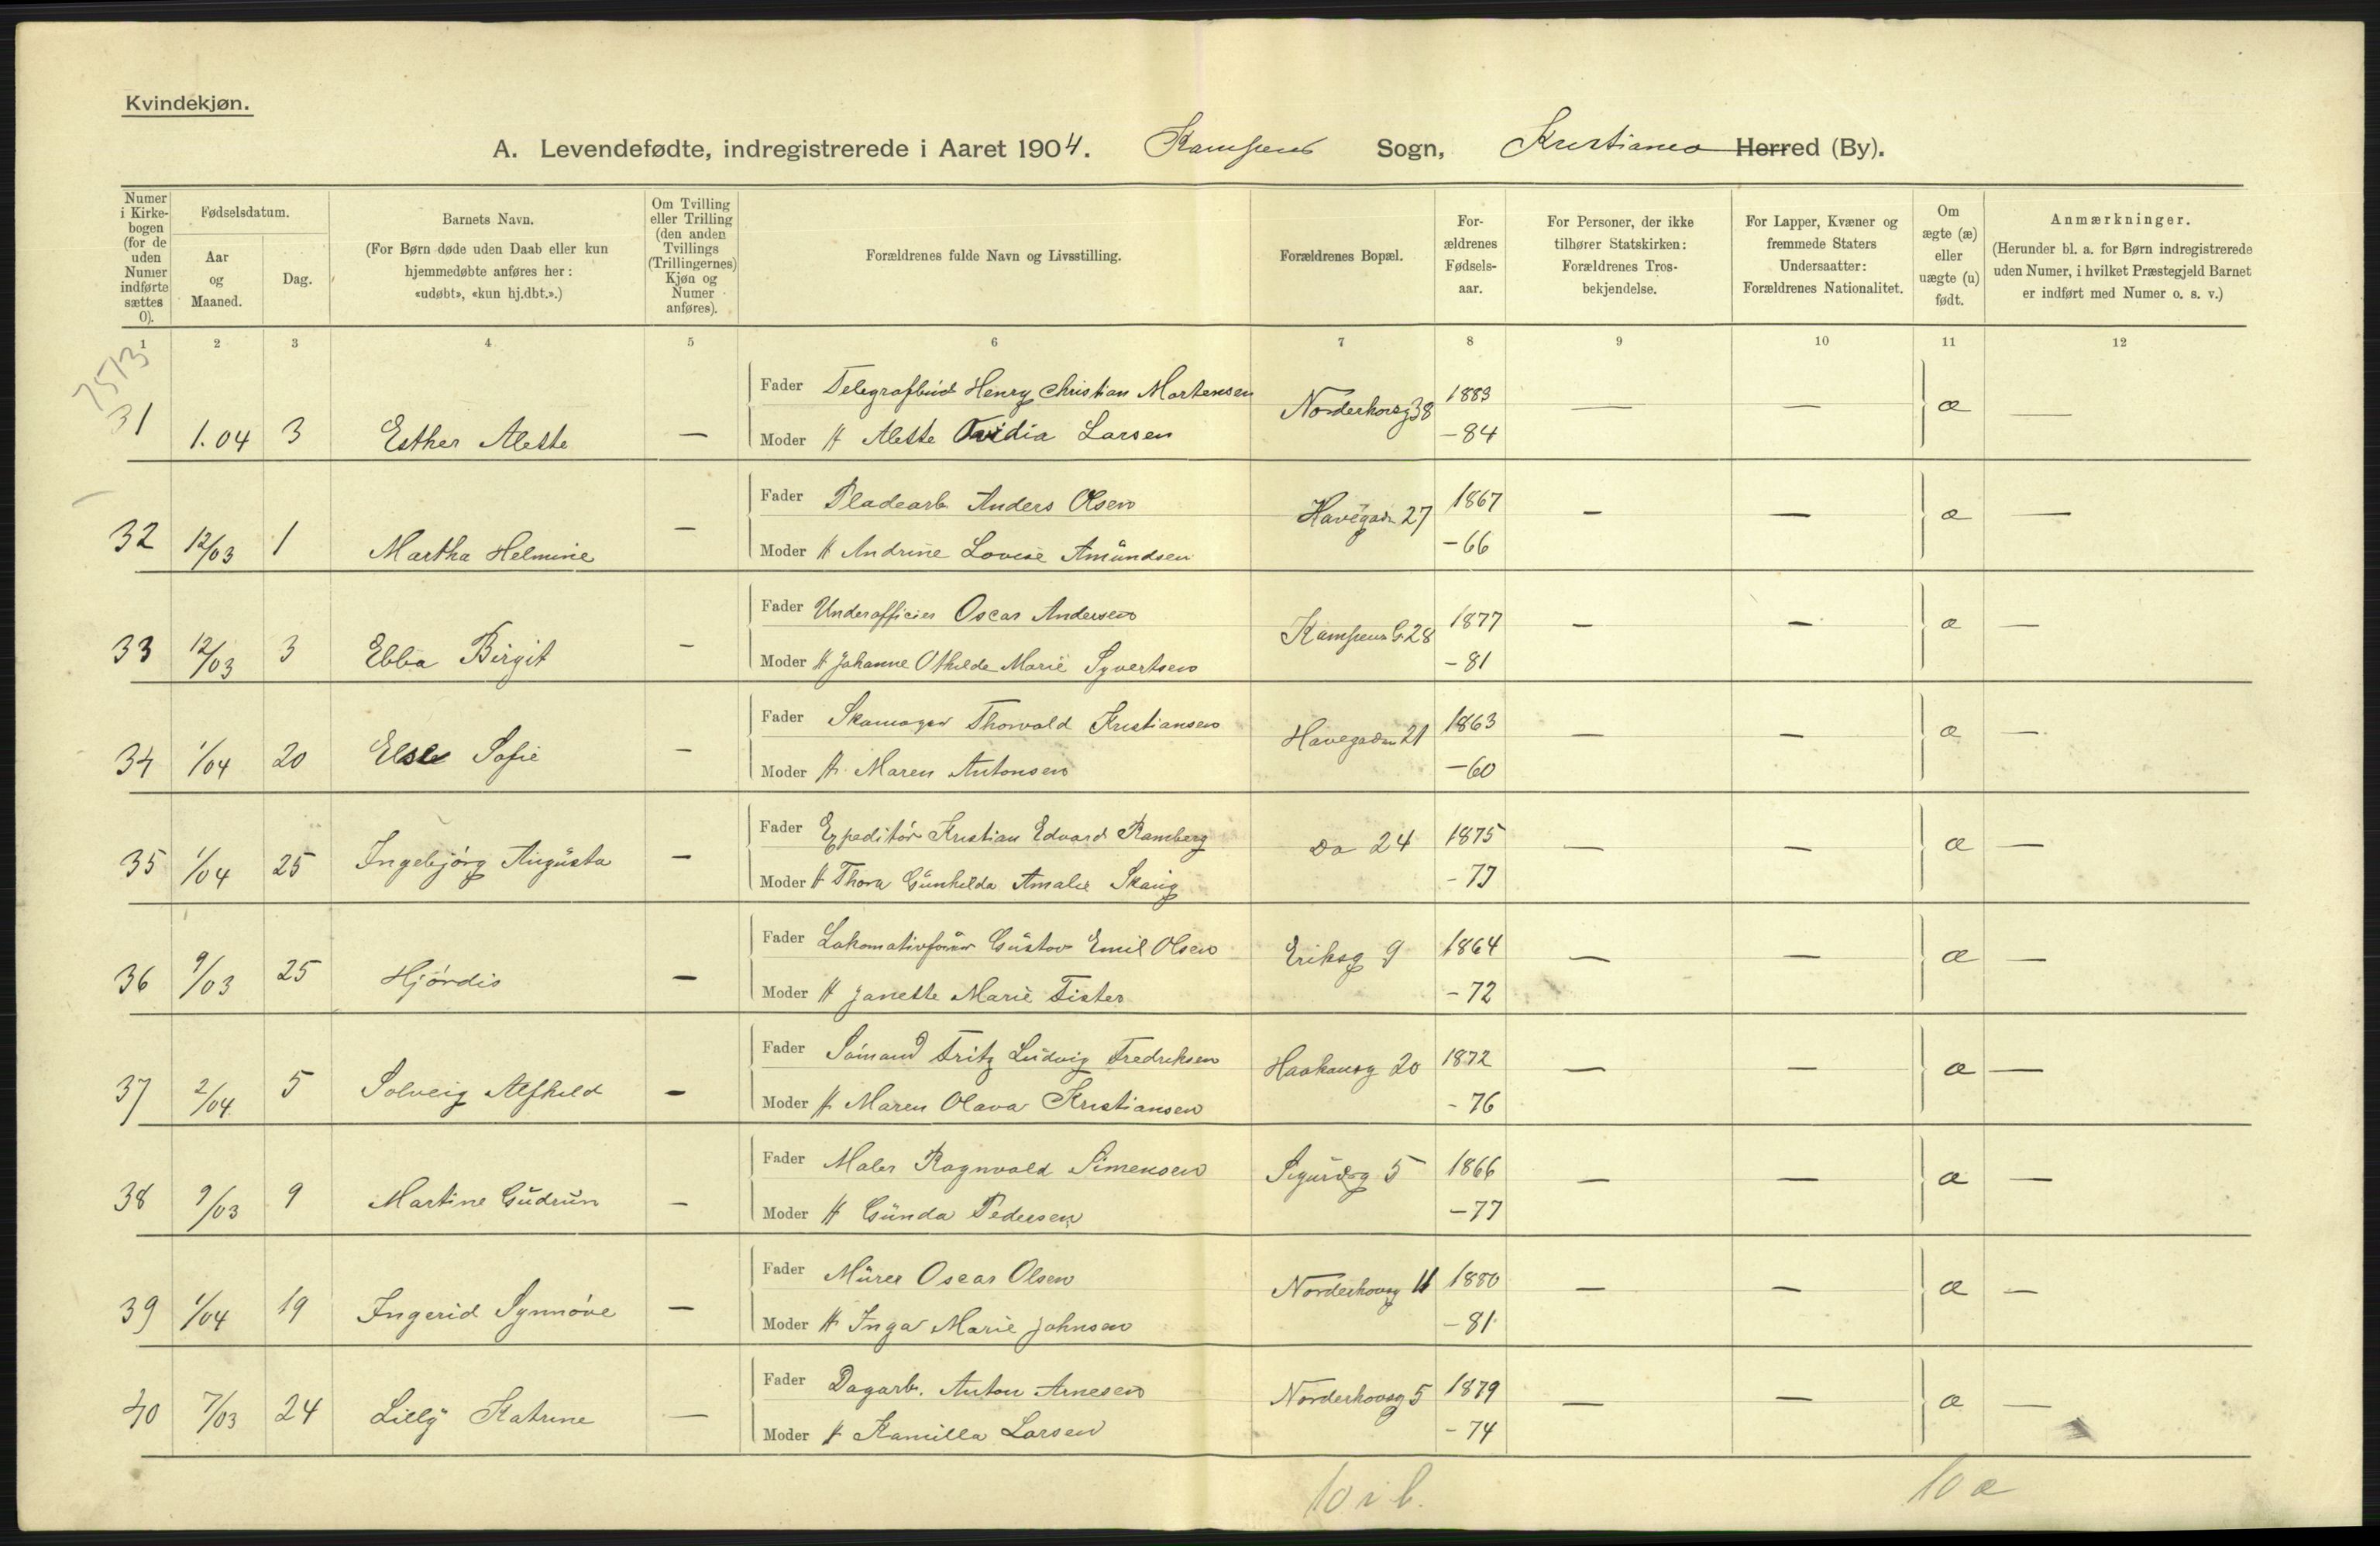 Kvindekjøn.
A. Levendefødte, indregistrerede i Aaret 1904. Kampens Sogn, Kristiania Herred (By).
Numer i Kirke-bogen (for de uden Numer indførte sættes 0).
Fødselsdatum.
Aar og Maaned.
Dag.
Barnets Navn.
(For Børn døde uden Daab eller kun hjemmedøbte anføres her: «udøbt», «kun hj.dbt.».)
Om Tvilling eller Trilling (den anden Tvillings (Trillingernes) Kjøn og Numer anføres).
Forældrenes fulde Navn og Livsstilling.
Forældrenes Bopæl.
For-ældrenes Fødsels-aar.
For Personer, der ikke tilhører Statskirken: Forældrenes Tros-bekjendelse.
For Lapper, Kvæner og fremmede Staters Undersaatter: Forældrenes Nationalitet.
Om ægte (æ) eller uægte (u) født.
Anmærkninger.
(Herunder bl. a. for Børn indregistrerede uden Numer, i hvilket Præstegjeld Barnet er indført med Numer o. s. v.)
1 2 3 4 5 6 7 8 9 10 11 12
7513
Fader Telegrafbud Henry Christian Mortensen Norderhovsg 38 1883
31 1.04 3 Esther Alette — Moder H Alette Ovidia Larsen - 84 — — æ —
Fader Pladearb Anders Olsen Havegadn 27 1867
32 12/03 1 Martha Helmine — Moder H Andrine Lovise Amundsen - 66 — — æ —
Fader Underofficier Oscar Andersen Kampens G. 28 1877
33 12/03 3 Ebba Birgit — Moder H Johanne Othilde Marie Syvertsen - 81 — — æ —
Fader Skomager Thorvald Kristiansen Havegaden 21 1863
34 1/04 20 Else Sofie — Moder H. Maren Antonsen - 60 — — æ —
Fader Expeditör Kristian Edvard Ramberg Do 24 1875
35 1/04 25 Ingebjörg Augusta — Moder H Thora Gunhilda Amalie Skaug - 77 — — æ —
Fader Lokomativförer Gustav Emil Olsen Eriksg 9 1864
36 9/03 25 Hjördis — Moder H Janette Marie Tister - 72 — — æ —
Fader Sömand Fritz Ludvig Fredriksen Haakonsg 20 1872
37 2/04 5 Solveig Alfhild — Moder H Maren Olava Kristiansen - 76 — — æ —
Fader Maler Ragnvald Simensen Sigurdsg 5 1866
38 9/03 9 Martine Gudrun — Moder H Gunda Pedersen - 77 — — æ —
Fader Murer Oscar Olsen Norderhovsg 11 1880
39 1/04 19 Ingerid Synnöve — Moder H Inga Marie Johnsen - 81 — — æ —
Fader Dagarb. Anton Arnesen Norderhovsg 5 1879
40 7/03 24 Lilly Katrine — Moder H Kamilla Larsen - 74 — — æ —
10 i b. 10 æ